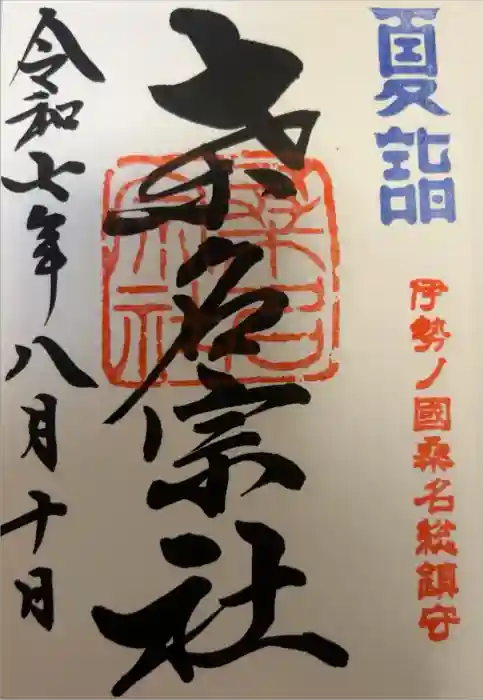 夏詣
伊勢ノ國桑名総鎮守
桑名宗社
桑名宗社
令和七年八月十日